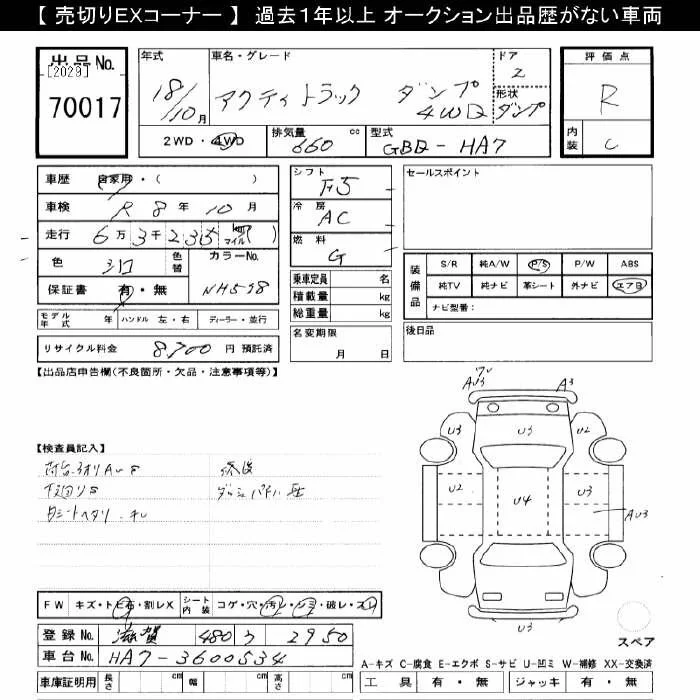 【 売切りEXコーナー 】 過去1年以上 オークション出品歴がない車両
出品No. [2029] 70017
年式 18/10月
車名・グレード アクティ トラック ダンプ 4WD
ドア 2
形状 ダンプ
評価点 R
内装 C
2WD・4WD
排気量 660 cc
型式 GBD-HA7
車歴 自家用・( )
車検 R 8 年 10 月
走行 6 万 3 千 2 3 5 km マイル ( )
色 シロ 色替 カラーNo. NH5-98
保証書 有・無
モデル年式 年 ハンドル 左・右 ディーラー・並行
リサイクル料金 8,700 円 預託済
シフト F5
冷房 AC
燃料 G
乗車定員 名
積載量 kg
総重量 kg
名変期限 月 日
セールスポイント
装備品 S/R 純A/W P/S P/W ABS
純TV 純ナビ 革シート 外ナビ エアB
ナビ型番:
後日品
【出品店申告欄(不良箇所・欠品・注意事項等)】
【検査員記入】
下回りS
FW キズ・トビ石・割レX
シート内装 コゲ・穴・汚レ・シミ・破レ・スレ
登録No. 滋賀 480 ウ 2950
車台No. HA7-3600534
車庫証明用 長さ cm 幅 cm 高さ cm
AU3 A3
U3 U3 U2
U2 U4 U3
AU3
U3
スペア
A-キズ C-腐食 E-エクボ S-サビ U-凹ミ W-補修 XX-交換済
工具 有・無 ジャッキ 有・無